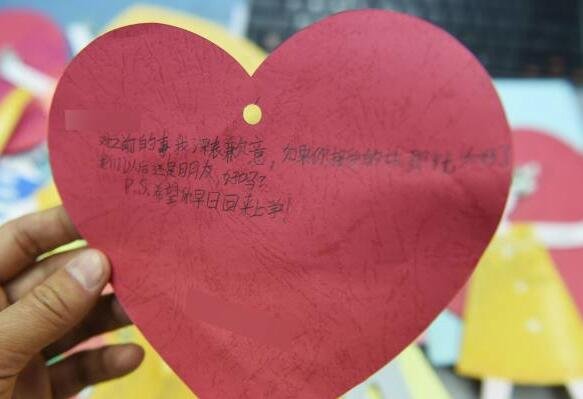 以前的事我深表歉意，如果你接受的话，那就太好了
我们以后还是朋友，好吗？
P.S.希望你早日回来上学！